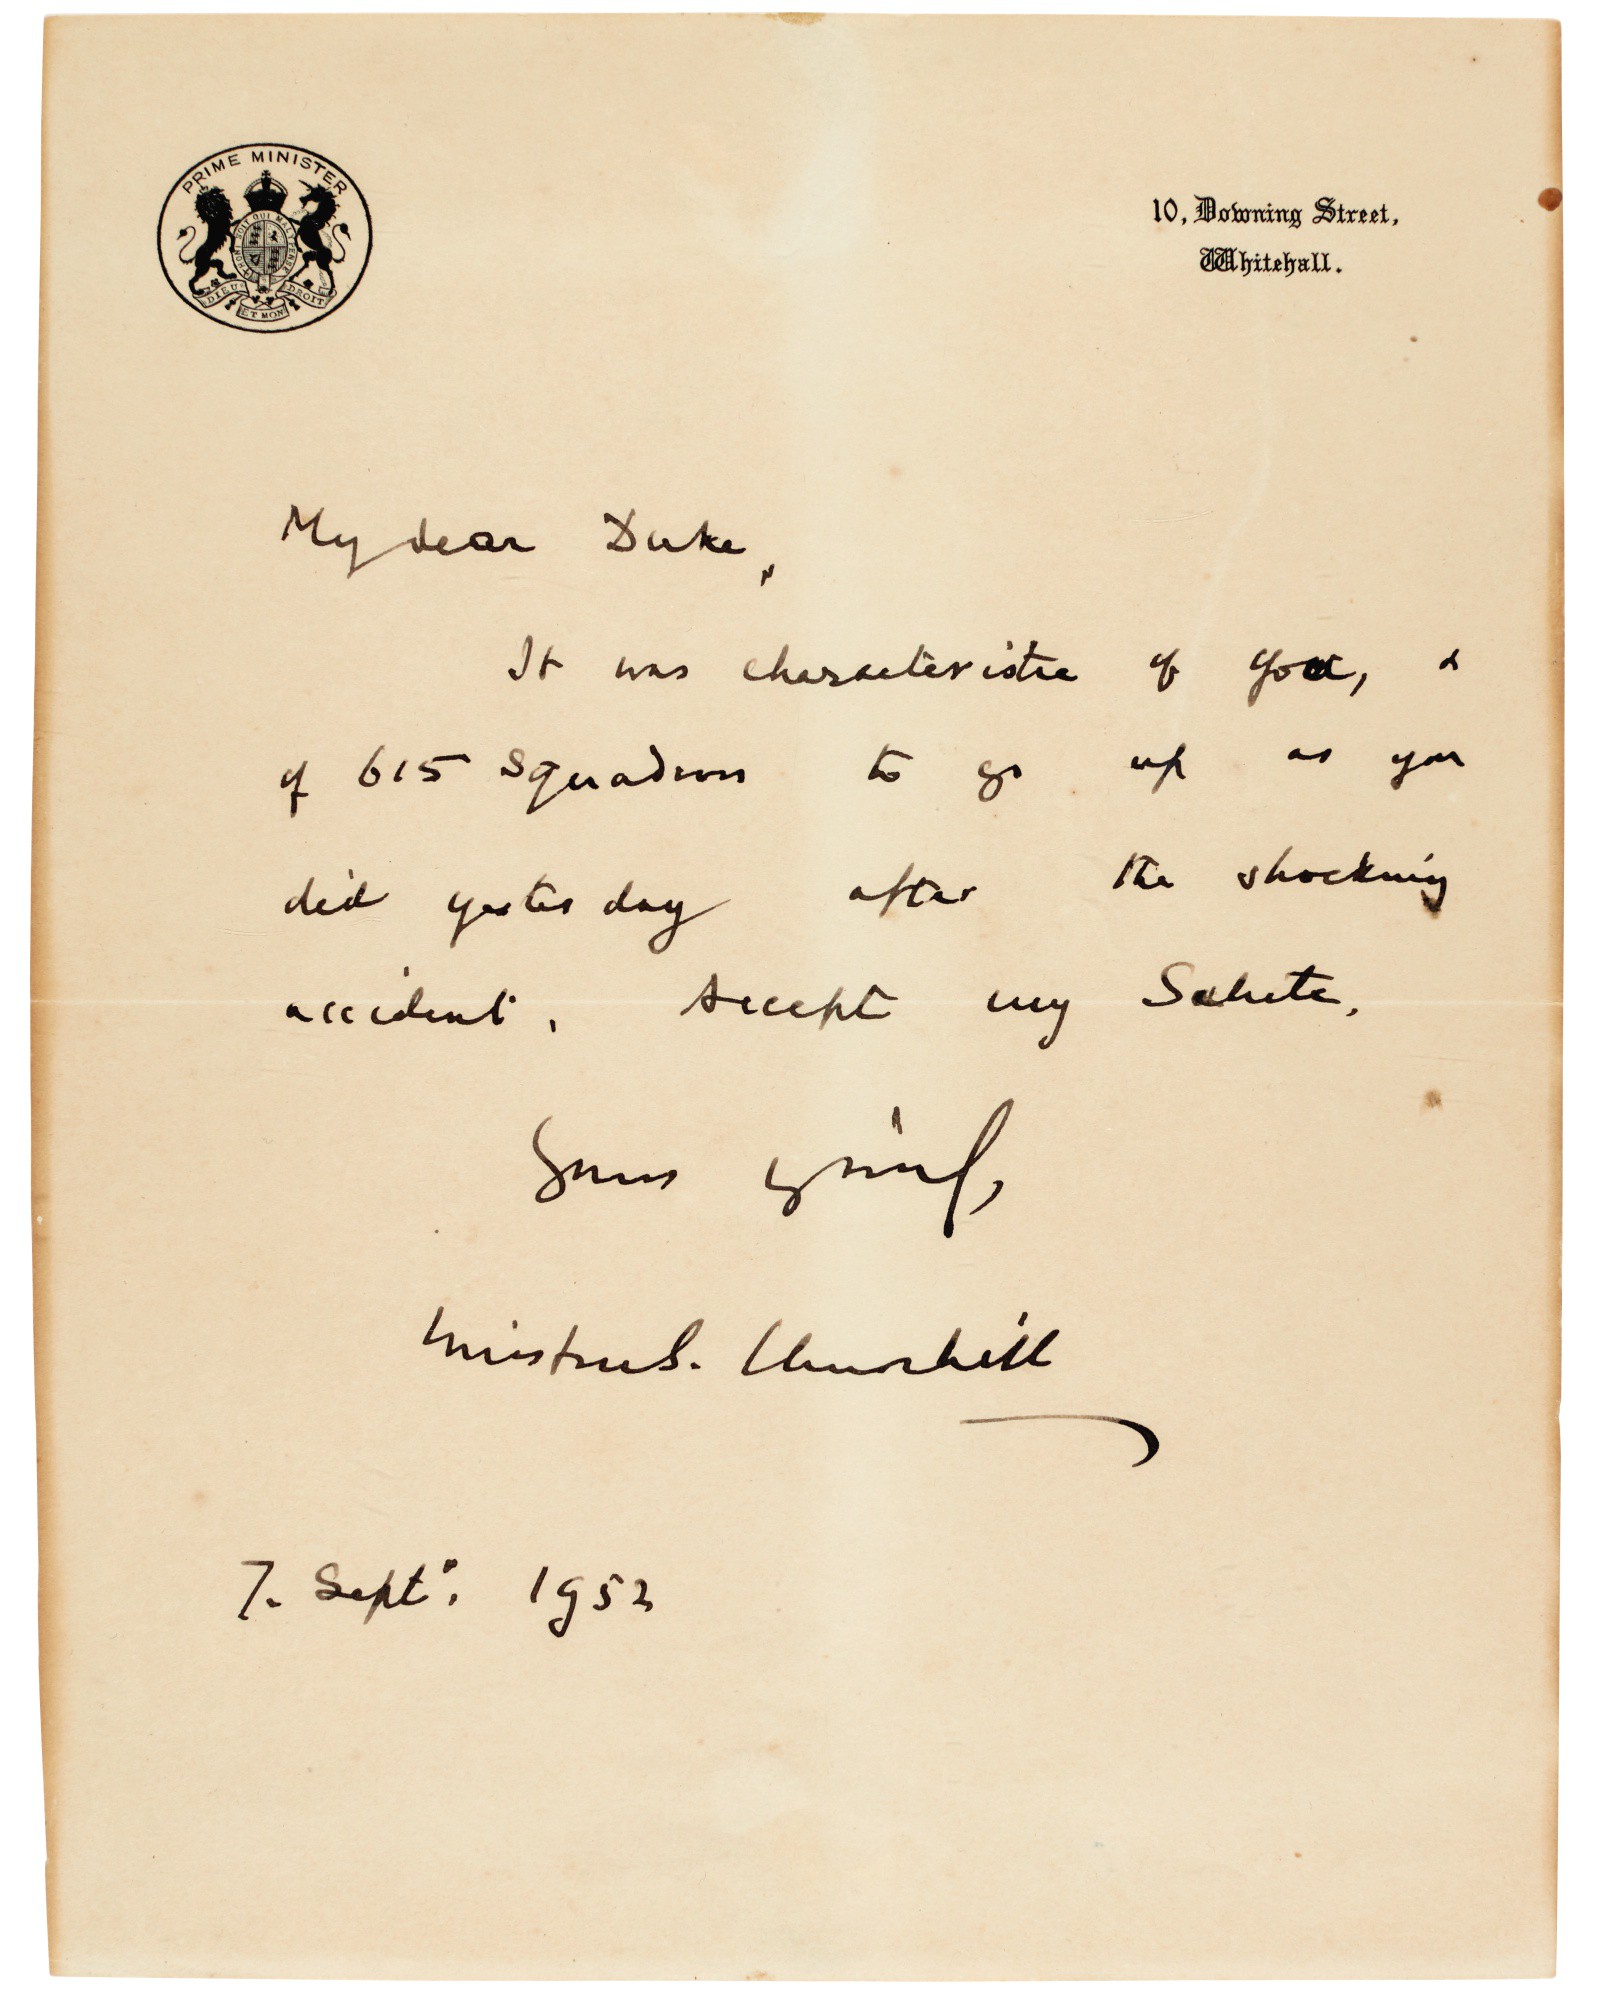 PRIME MINISTER
HONI SOIT QUI MAL Y PENSE
DIEU ET MON DROIT
10, Downing Street,
Whitehall.
My dear Duke,
It was characteristic of you, &
of 615 Squadron to go up as you
did yesterday after the shocking
accident. Accept my Salute.
Yours
Winston S. Churchill
7. Sept. 1952